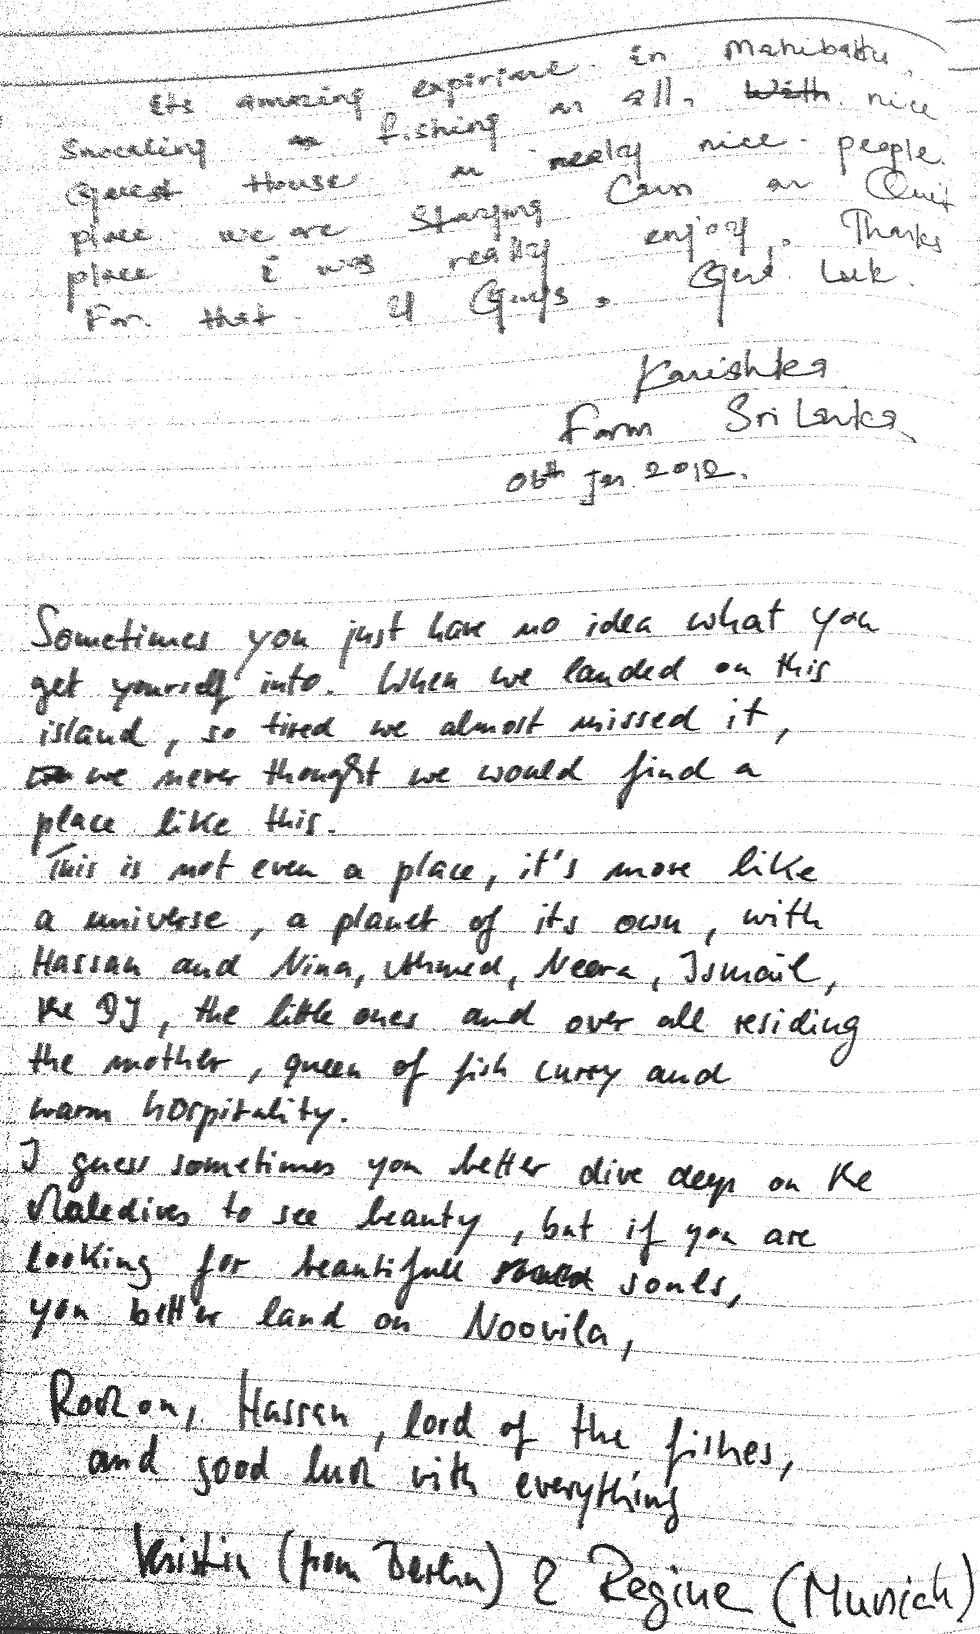 its amazing expiriance in Mahibadhu,
Snocaling fishing an all. With nice
Guest House an realy nice people.
place we are Staying Calm an Quit
place i was really enjoy. Thanks
For that U Guys. Good Luk.
Kanishka
Form Sri Lanka
06th Jan 2012.
Sometimes you just have no idea what you
get yourself into. When we landed on this
island, so tired we almost missed it,
we never thought we would find a
place like this.
This is not even a place, it's more like
a universe, a planet of its own, with
Hassan and Nina, Ahmed, Neera, Ismail,
the DJ, the little ones and over all residing
the mother, queen of fish curry and
warm hospitality.
I guess sometimes you better dive deep on the
Maledives to see beauty, but if you are
looking for beautifull souls,
you better land on Noovila,
Rock on, Hassan, lord of the fishes,
and good luck with everything
Kristin (from Berlin) & Regine (Munich)